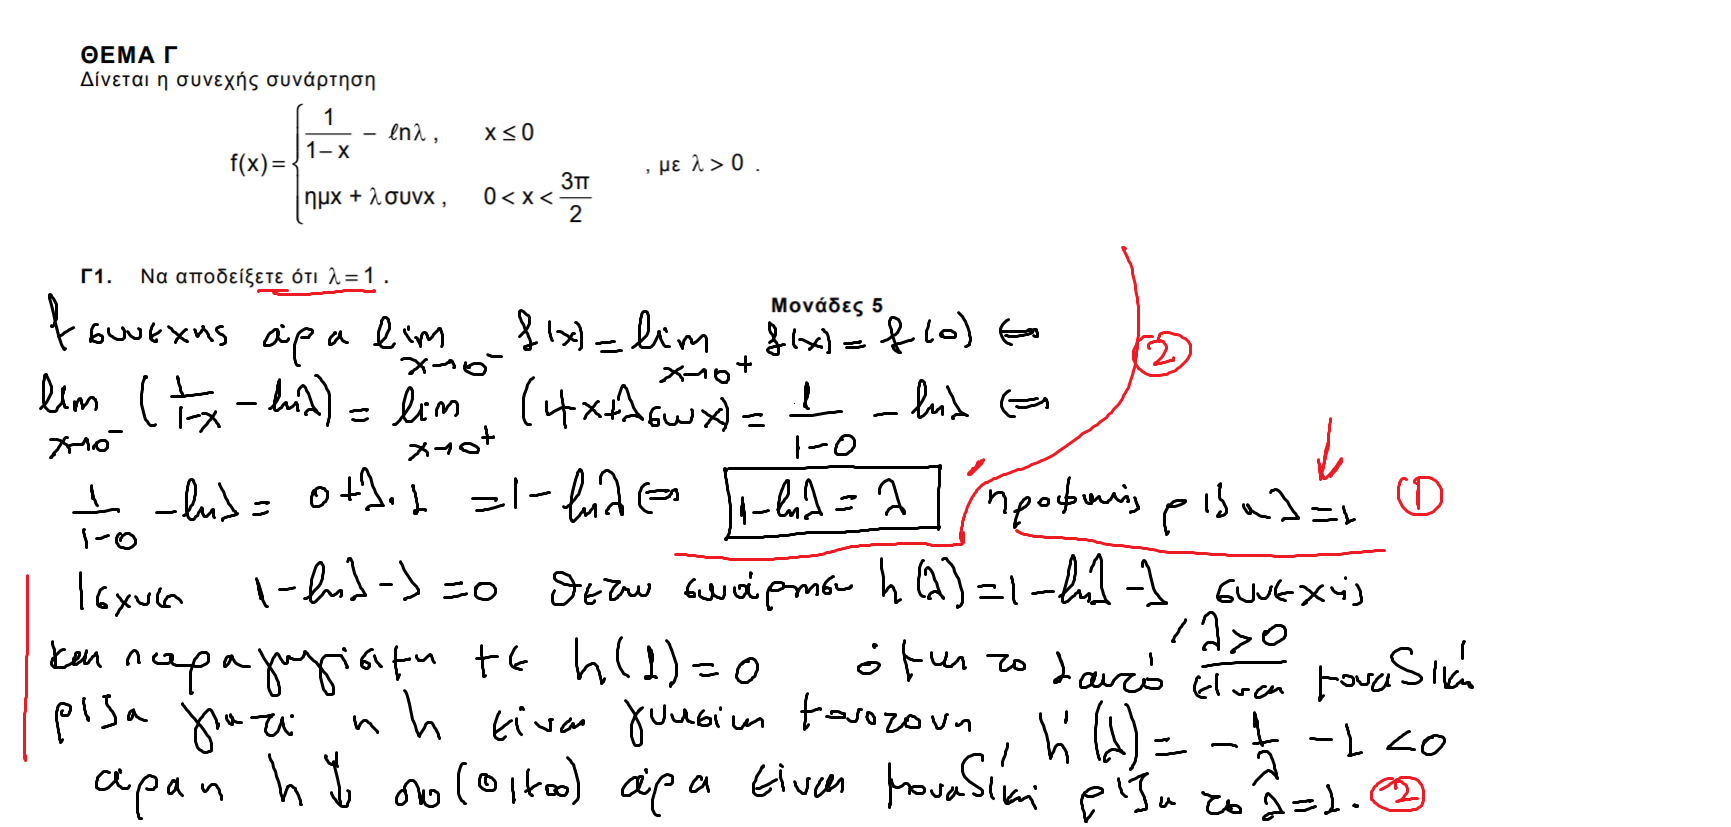 ΘΕΜΑ Γ
Δίνεται η συνεχής συνάρτηση
f(x) = { 1/(1−x) − ℓnλ , x ≤ 0
ημx + λσυνx , 0 < x < 3π/2 , με λ > 0 .
Γ1. Να αποδείξετε ότι λ = 1 .
Μονάδες 5
f συνεχης άρα lim x→0⁻ f(x) = lim x→0⁺ f(x) = f(0) ⇔
②
lim x→0⁻ (1/(1-x) − lnλ) = lim x→0⁺ (ημx+λσυνx) = 1/(1−0) − lnλ ⇔
1/(1−0) − lnλ = 0+λ·1 = 1 − lnλ ⇔ 1−lnλ = λ προφανής ρίζα λ=1 ①
Ισχυει 1−lnλ−λ=0 θετω συνάρτηση h(λ)=1−lnλ−λ συνεχής
και παραγωγίσιμη με h(1)=0 όμως το 1 αυτό , λ>0 είναι μοναδική
ρίζα γιατί η h είναι γνησίως μονοτονη , h'(λ) = −1/λ −1 <0
άρα η h ↓ στο (0,+∞) άρα είναι μοναδική ρίζα το λ=1. ②